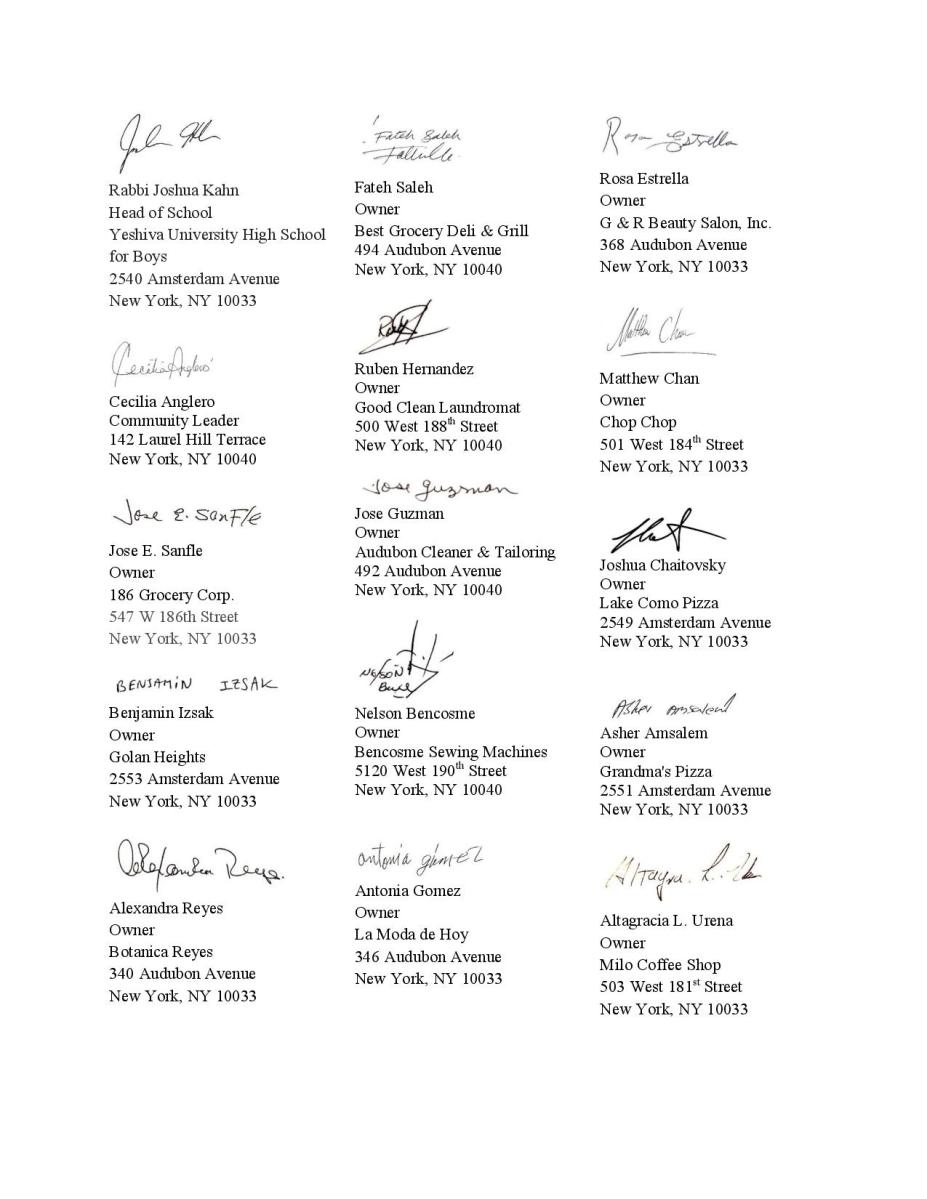 Rabbi Joshua Kahn
Head of School
Yeshiva University High School
for Boys
2540 Amsterdam Avenue
New York, NY 10033
Cecilia Anglero
Cecilia Anglero
Community Leader
142 Laurel Hill Terrace
New York, NY 10040
Jose E. Sanfle
Jose E. Sanfle
Owner
186 Grocery Corp.
547 W 186th Street
New York, NY 10033
BENJAMIN IZSAK
Benjamin Izsak
Owner
Golan Heights
2553 Amsterdam Avenue
New York, NY 10033
Alexandra Reyes
Owner
Botanica Reyes
340 Audubon Avenue
New York, NY 10033
Fateh Saleh
Fateh Saleh
Owner
Best Grocery Deli & Grill
494 Audubon Avenue
New York, NY 10040
Ruben Hernandez
Owner
Good Clean Laundromat
500 West 188th Street
New York, NY 10040
Jose Guzman
Jose Guzman
Owner
Audubon Cleaner & Tailoring
492 Audubon Avenue
New York, NY 10040
Nelson
Nelson Bencosme
Owner
Bencosme Sewing Machines
5120 West 190th Street
New York, NY 10040
Antonia Gomez
Antonia Gomez
Owner
La Moda de Hoy
346 Audubon Avenue
New York, NY 10033
Rosa Estrella
Rosa Estrella
Owner
G & R Beauty Salon, Inc.
368 Audubon Avenue
New York, NY 10033
Matthew Chan
Matthew Chan
Owner
Chop Chop
501 West 184th Street
New York, NY 10033
Joshua Chaitovsky
Owner
Lake Como Pizza
2549 Amsterdam Avenue
New York, NY 10033
Asher Amsalem
Asher Amsalem
Owner
Grandma's Pizza
2551 Amsterdam Avenue
New York, NY 10033
Altagracia L. Urena
Owner
Milo Coffee Shop
503 West 181st Street
New York, NY 10033